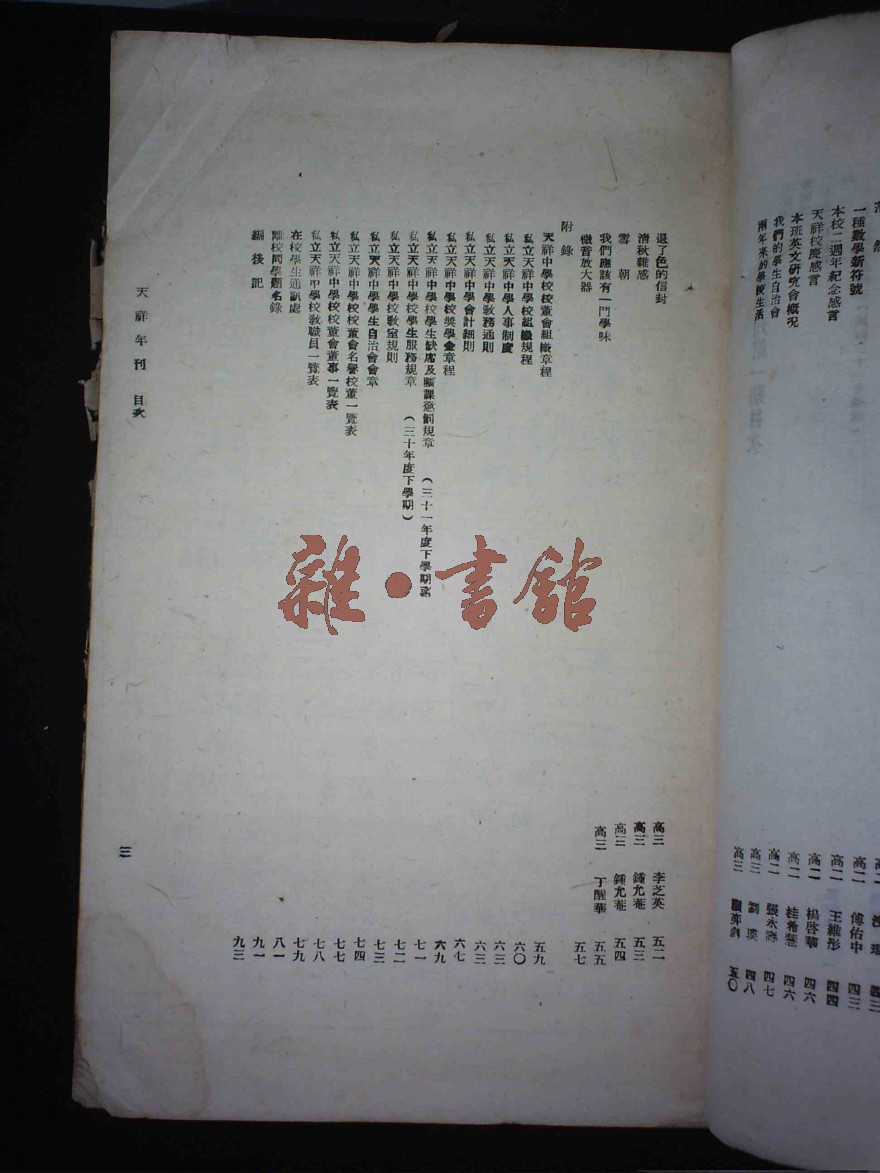 一種數學新符號 高二 傅佑中 四三
本校二週年紀念感言 高二 王維彤 四四
天祥校慶感言 高二 楊啓華 四六
本班英文研究會概况 高二 桂希慧 四六
我們的學生自治會 高二 張永 四七
兩年來的學校生活 高三 五〇
退了色的信封 高三 李芝英 五二
清秋雜感 高三 鍾允菴 五三
雪朝 高三 鍾允菴 五四
我們應該有一門學味 高三 丁醒華 五五
微音放大器 五七
附錄
天祥中學校校董會組織章程 五九
私立天祥中學校組織規程 六〇
私立天祥中學人事制度 六三
私立天祥中學教務通則 六三
私立天祥中學會計細則 六七
私立天祥中學校獎學金章程 六九
私立天祥中學校學生缺席及曠課懲罰規章 (三十一年度下學期 七一
私立天祥中學校學生服務規章 (三十年度下學期) 七二
私立天祥中學校教室規則 七三
私立天祥中學學生自治會會章 七四
私立天祥中學校校董會名譽校董一覽表 七七
私立天祥中學校校董會董事一覽表 七八
私立天祥中學校教職員一覽表 七九
在校學生通訊處 八一
離校同學題名錄 九一
編後記 九三
天祥年刊 目次
三
雜·書館